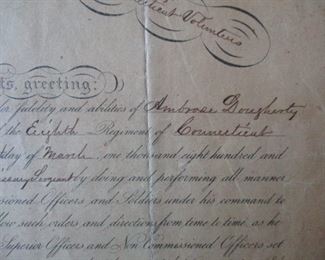 cticut Volunteers
ts, greeting:
fidelity and abilities of Ambrose Dougherty
the Eighth Regiment of Connecticut
day of March, one thousand eight hundred and
ssary Sergeant by doing and performing all manner
sioned Officers and Soldiers under his command to
low such orders and directions from time to time, as he
Superior Officers and Non Commissioned Officers set